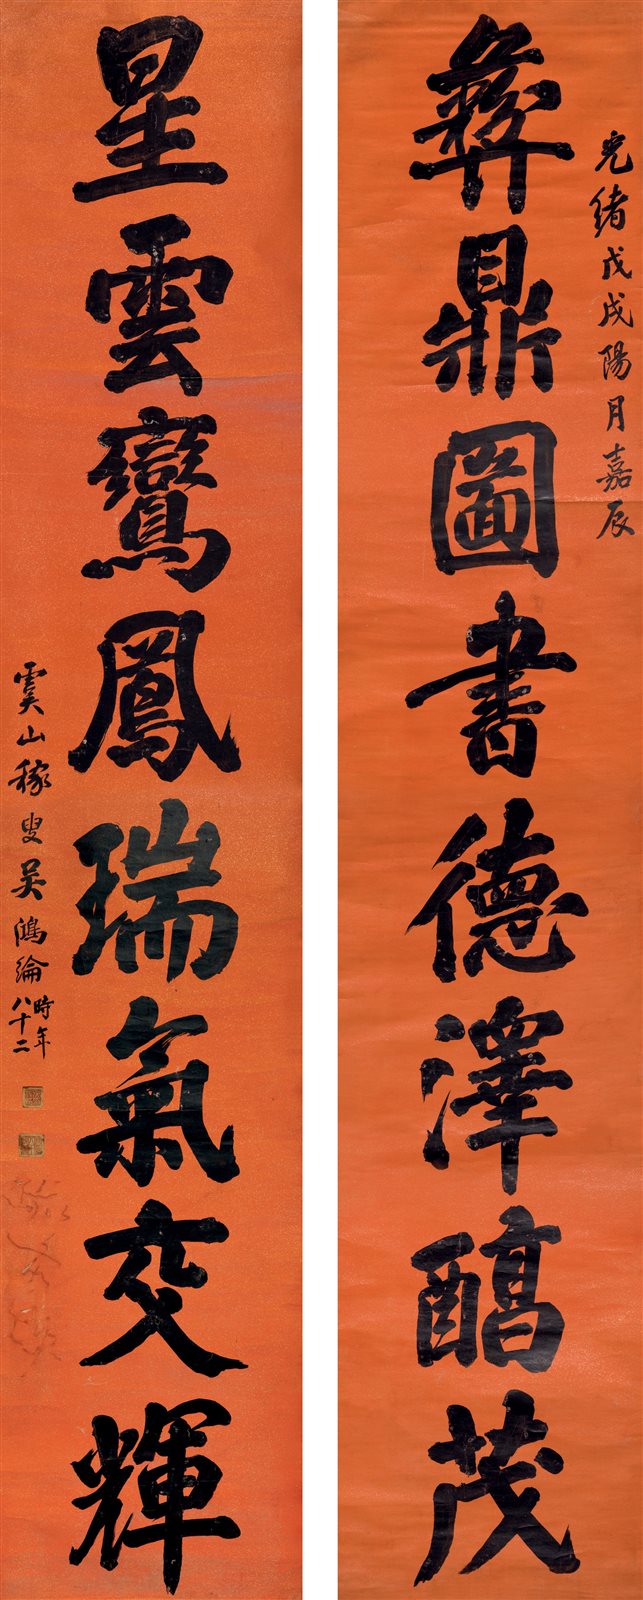 光緒戊戌陽月嘉辰
彝鼎圖書德澤醕茂
星雲鸞鳳瑞氣交輝
虞山稼叟吳鴻綸時年八十二